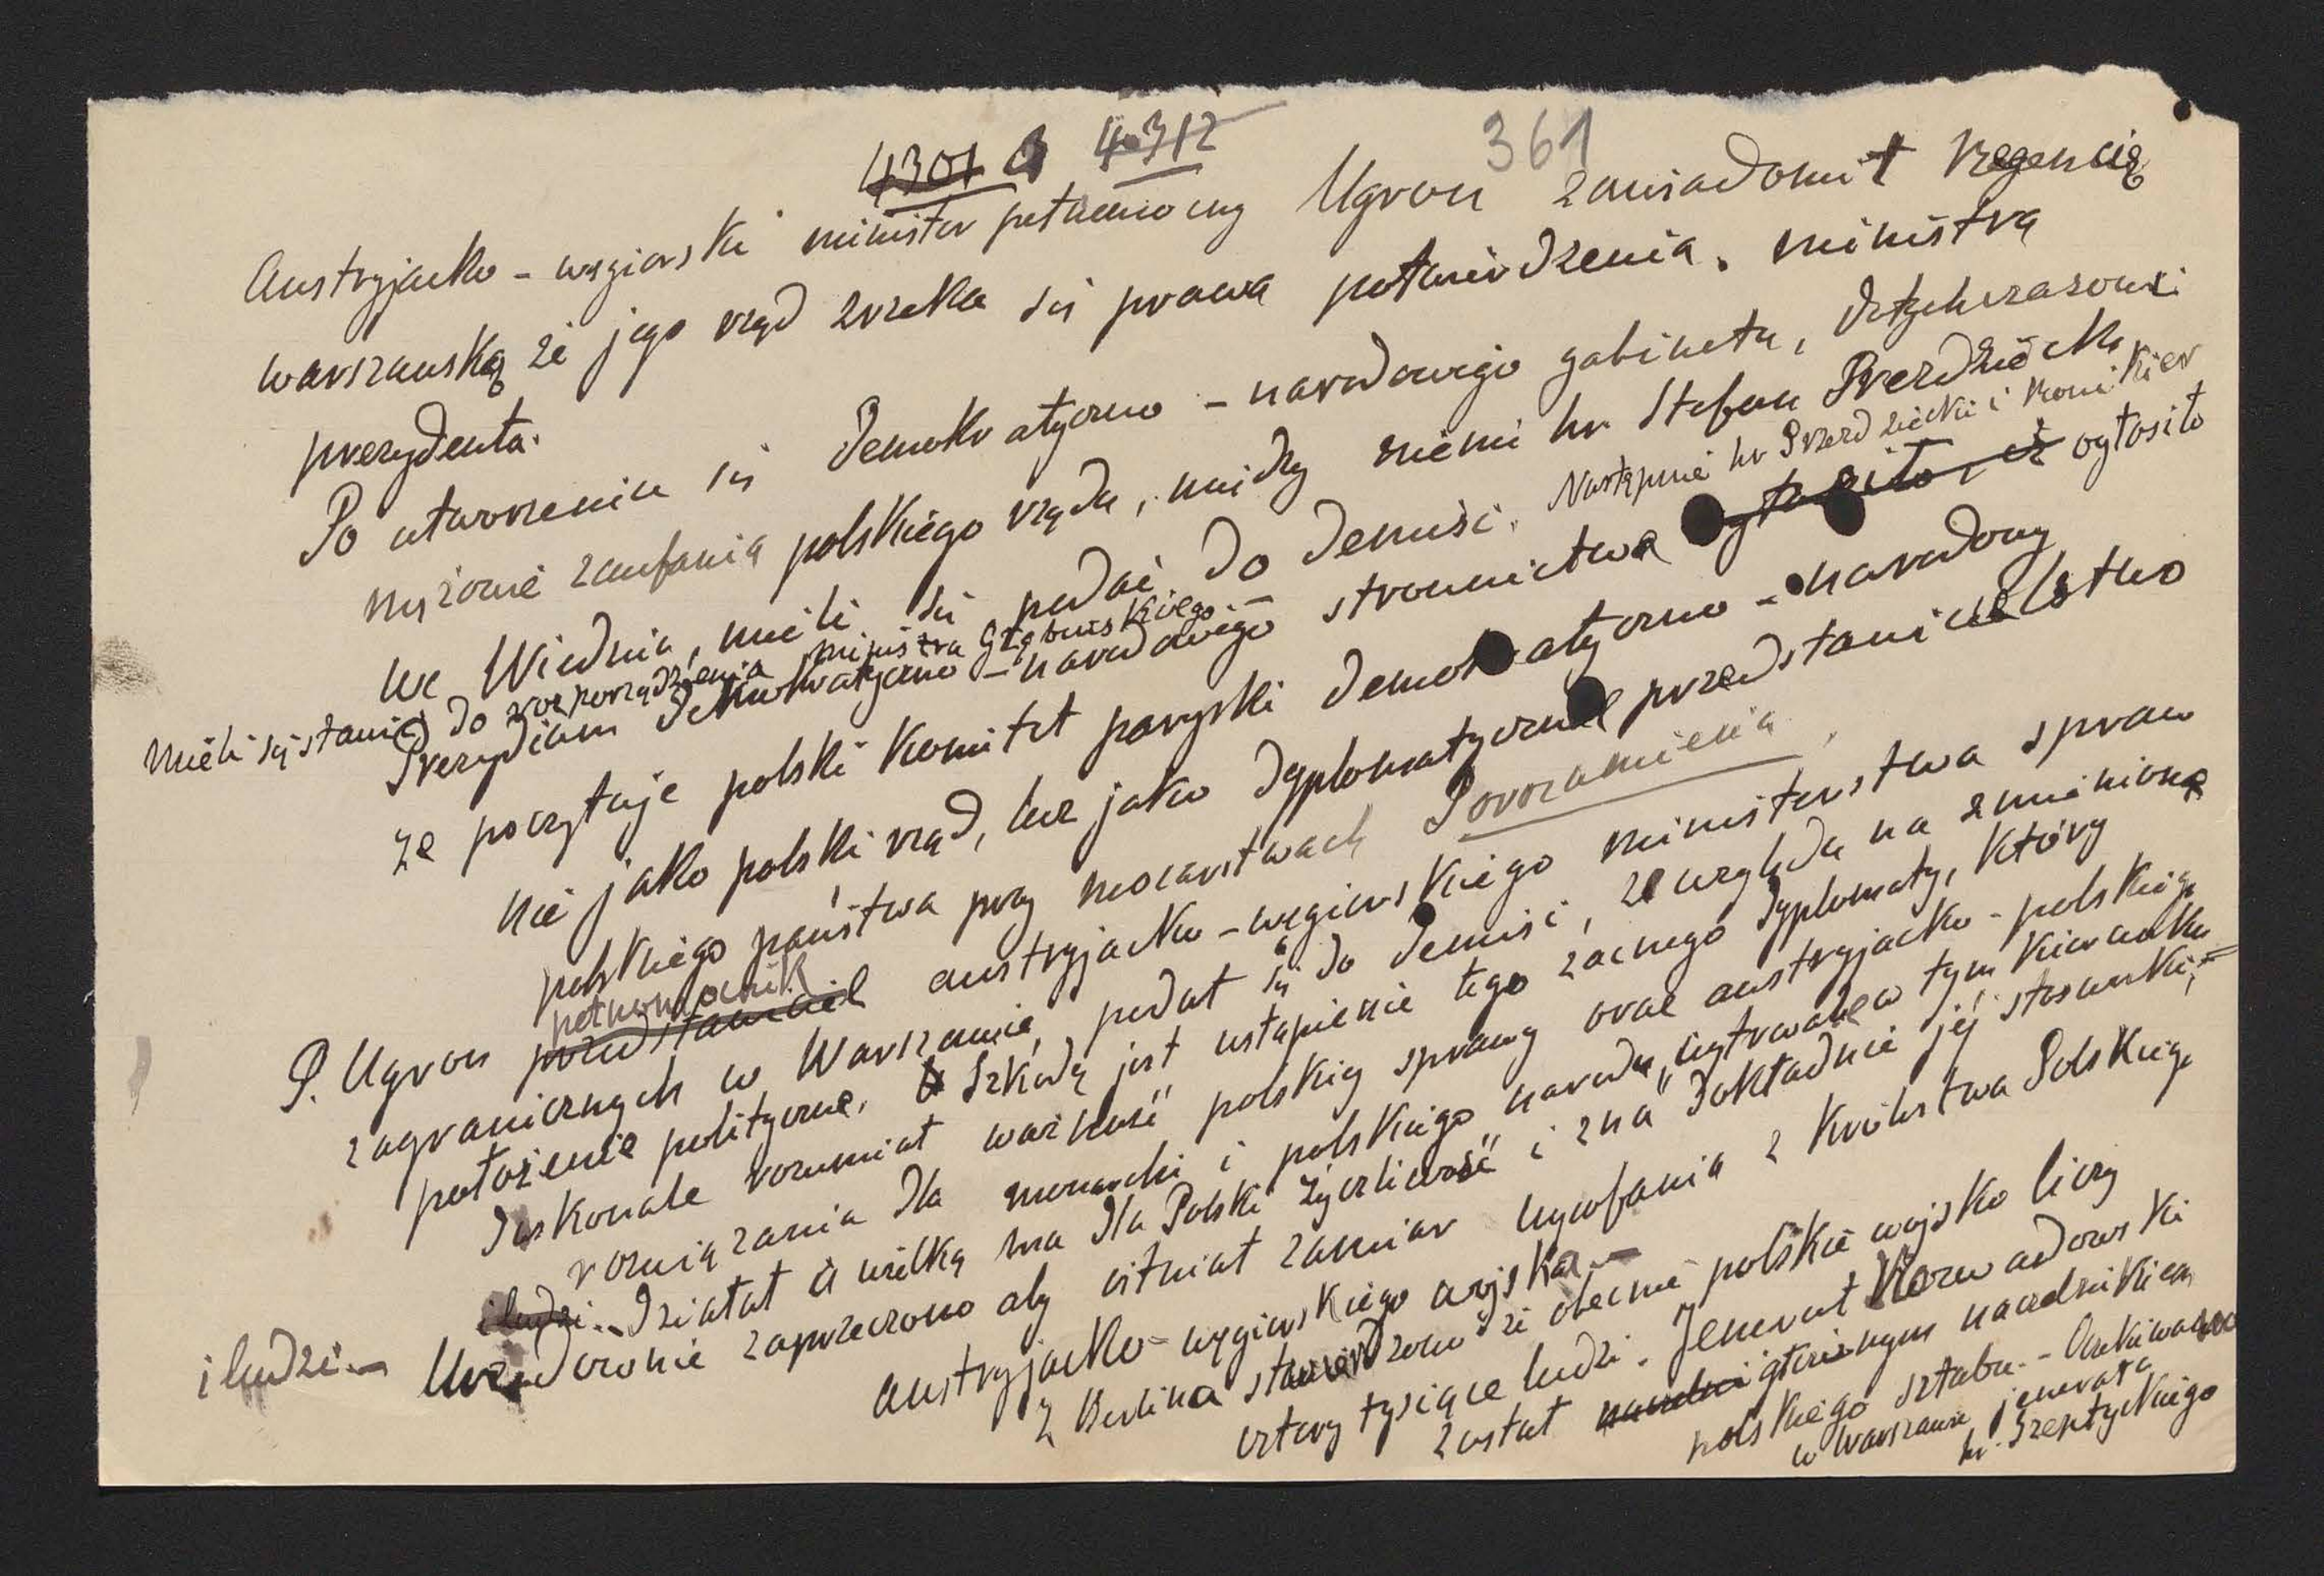 4301 a 4312
361
Austryjacko - węgierski minister pełnomocny Ugron zawiadomił Regencię
warszauską że jego rząd zrzeka się prawa potwierdzenia ministra
prezydenta.
Po utworzeniu się Demokratyczno - narodowego gabinetu, dotychczasowi
mężowie zaufania polskiego rządu, między niemi hr. Stefan Przezdziecki
we Wiedniu, mieli się podać do demisi. Następnie hr Przezdziecki i Ronikier
mieli się stawić do rozporządzenia ministra Głąbinskiego.
Prezydium Demokratyczno - narodowego stronnictwa ogłosiło, iż ogłosiło
że poczytuje polski Komitet paryski demokratyczno - narodowy
nie jako polski rząd, lecz jako dyplomatyczne przedstawicielstwo
polskiego państwa przy mocarstwach Porozumienia.
pełnomocnik
P. Ugron przedstawiciel austryjacko - węgierskiego ministerstwa spraw
zagranicznych w Warszawie, podał się do demisi, ze względu na zmienione
położenie polityczne. Szkodą jest ustąpienie tego zacnego dyplomaty, który
doskonale rozumiał ważność polskiej sprawy oraz austryjacko - polskiego
rozwiązania dla monarchi i polskiego narodu, wytrwale w tym kierunku
i ludzi. Działał a wielką ma dla Polski życzliwość i zna dokładnie jej stosunki,
i ludzi. - Urzędownie zaprzeczono aby istniał zamiar wycofania z Królestwa Polskiego
austryjacko - węgierskiego wojska. -
Z Berlina stwierdzono że obecnie polskie wojsko liczy
cztery tysiące ludzi. Jenerał Rozwadowski
został naczelni głównym naczelnikiem
polskiego sztabu. - Oczekiwano
w Warszawie jenerała
hr. Szeptyckiego